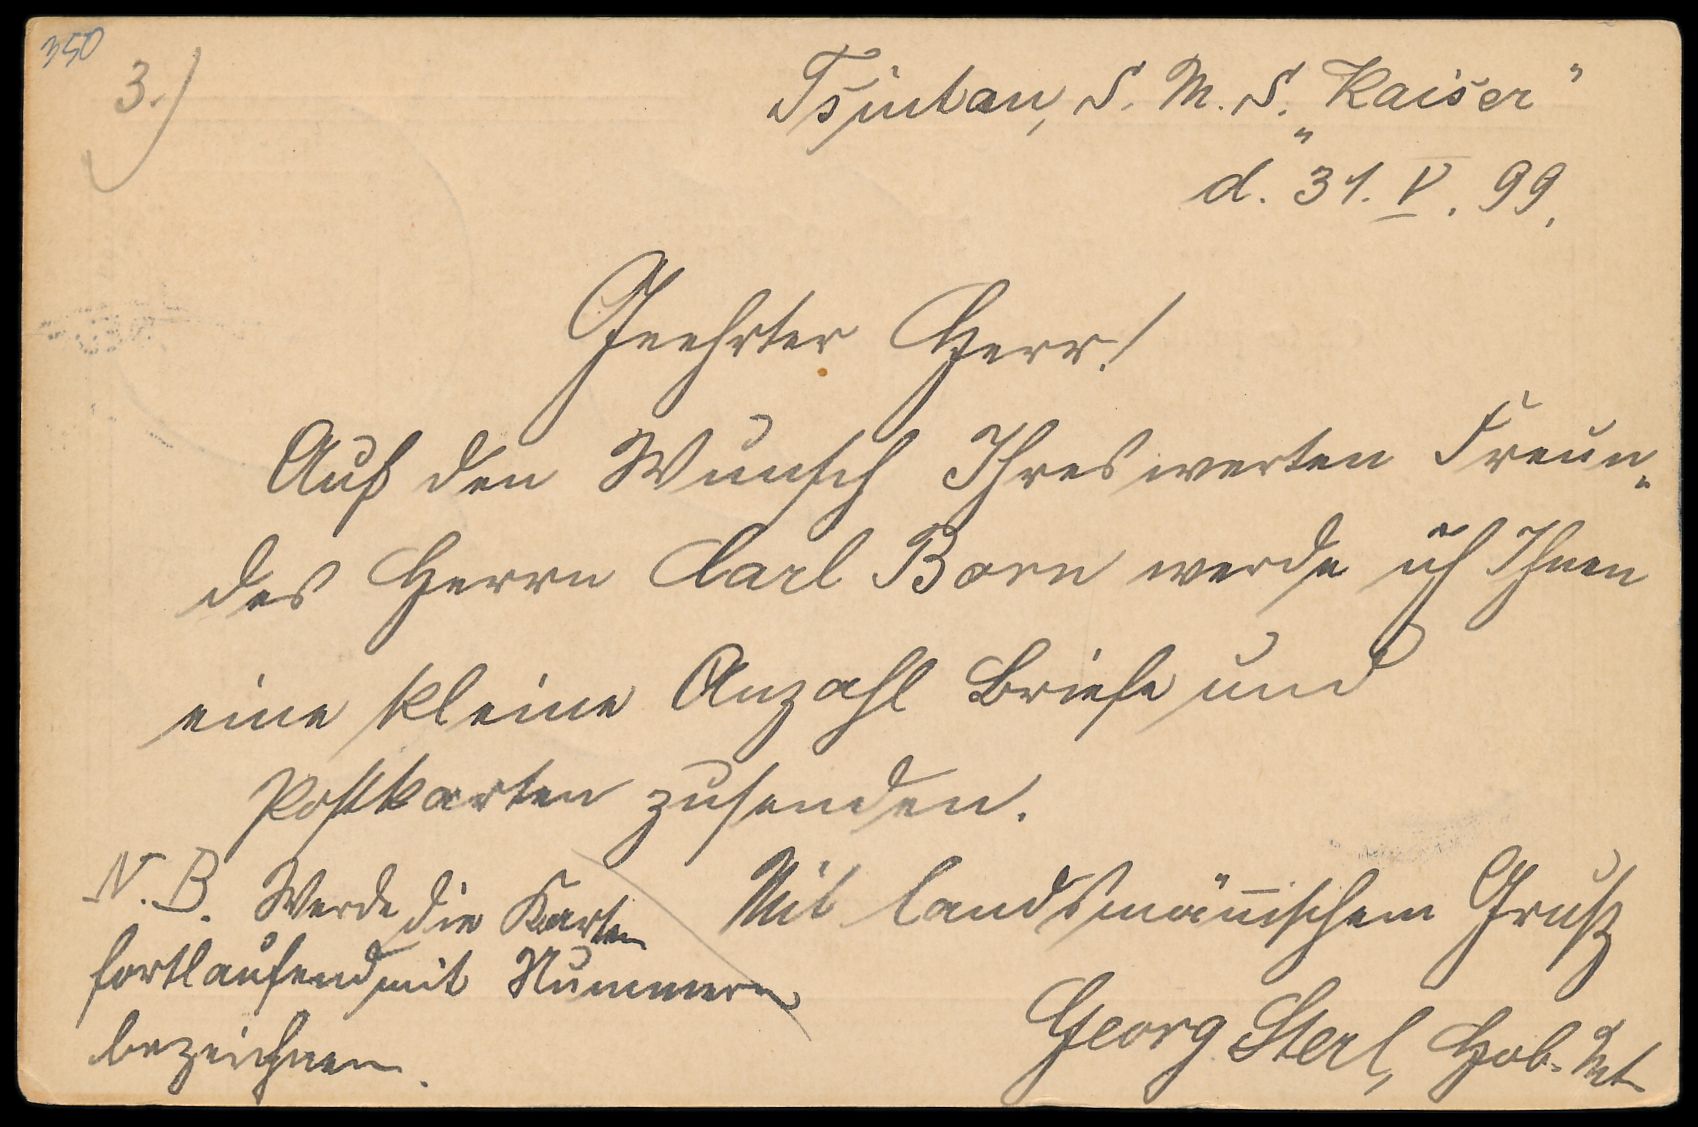 350
3.)
Tsintau, S. M. S. „Kaiser"
d. 31. V. 99.
Geehrter Herr!
Auf den Wunsch Ihres werten Freun-
des Herrn Carl Born werde ich Ihnen
eine kleine Anzahl Briefe und
Postkarten zusenden.
Mit landsmännischem Gruß
Georg Sterl, Hob. Mt.
N. B. Werde die Karten
fortlaufend mit Nummern
bezeichnen.